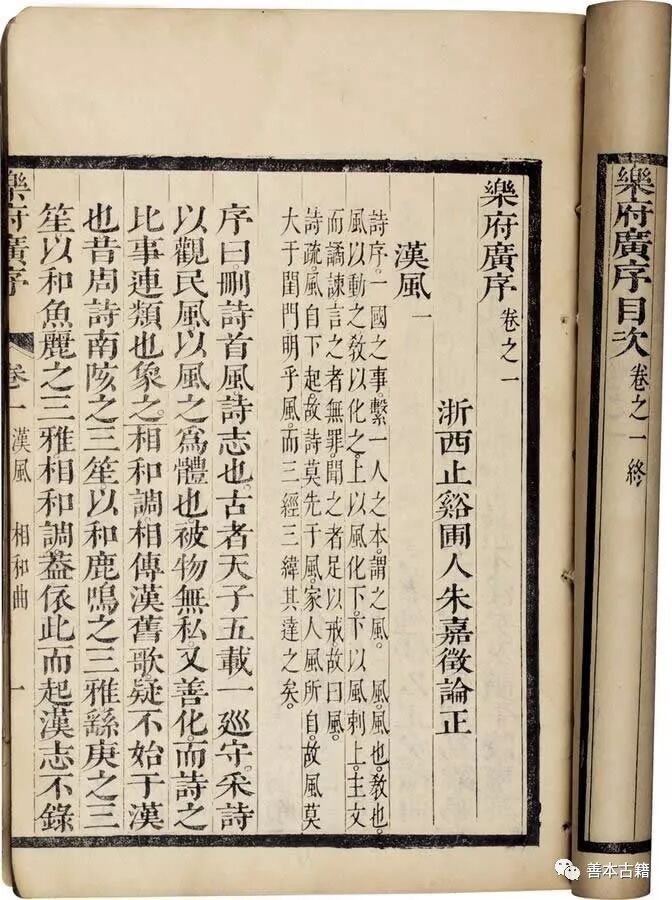 樂府廣序目次 卷之一終
樂府廣序 卷之一
浙西止谿圃人朱嘉徵論正
漢風一
詩序。一國之事。繫一人之本。謂之風。 風。風也。敎也。
風以動之。敎以化之。上以風化下。下以風刺上。主文
而譎諫。言之者無罪。聞之者足以戒。故曰風。
詩疏。風自下起。故詩莫先于風。家人風所自。故風莫
大于閨門。明乎風。而三經三緯其達之矣。
序曰。刪詩首風。詩志也。古者天子五載一巡守。采詩
以觀民風。以風之爲體也。被物無私。又善化。而詩之
比事連類也象之。相和調。相傳漢舊歌。疑不始于漢
也。昔周詩南陔之三笙以和鹿鳴之三雅。繇庚之三
笙以和魚麗之三雅。相和調。葢依此而起。漢志不錄
樂府廣序 卷一 漢風 相和曲 一
善本古籍